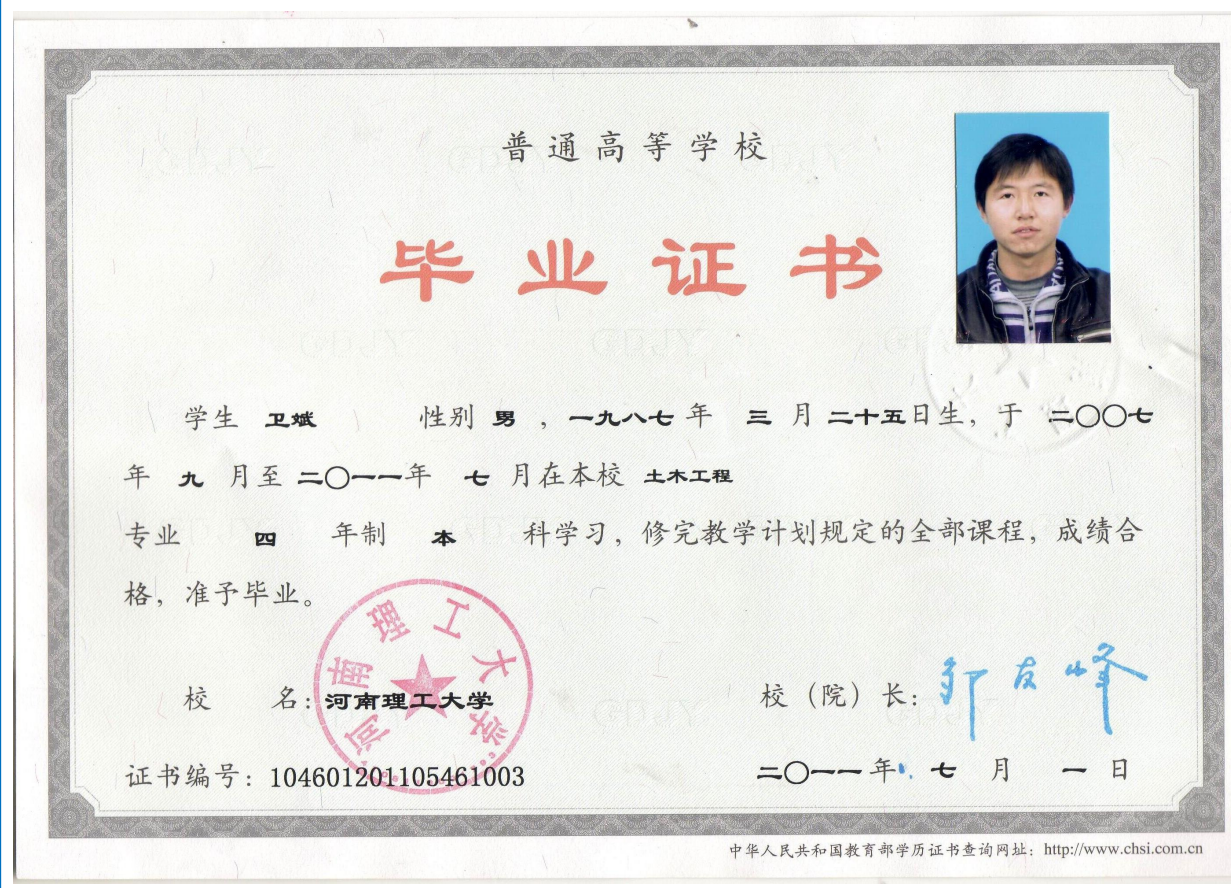 普通高等学校
毕业证书
学生 卫斌 性别 男 ，一九八七 年 三 月 二十五日生，于 二〇〇七
年 九 月至 二〇一一年 七 月在本校 土木工程
专业 四 年制 本 科学习，修完教学计划规定的全部课程，成绩合
格，准予毕业。
河南理工大学
校 名：河南理工大学 校（院）长：邹友峰
证书编号：104601201105461003 二〇一一年 七 月 一 日
中华人民共和国教育部学历证书查询网址：http://www.chsi.com.cn